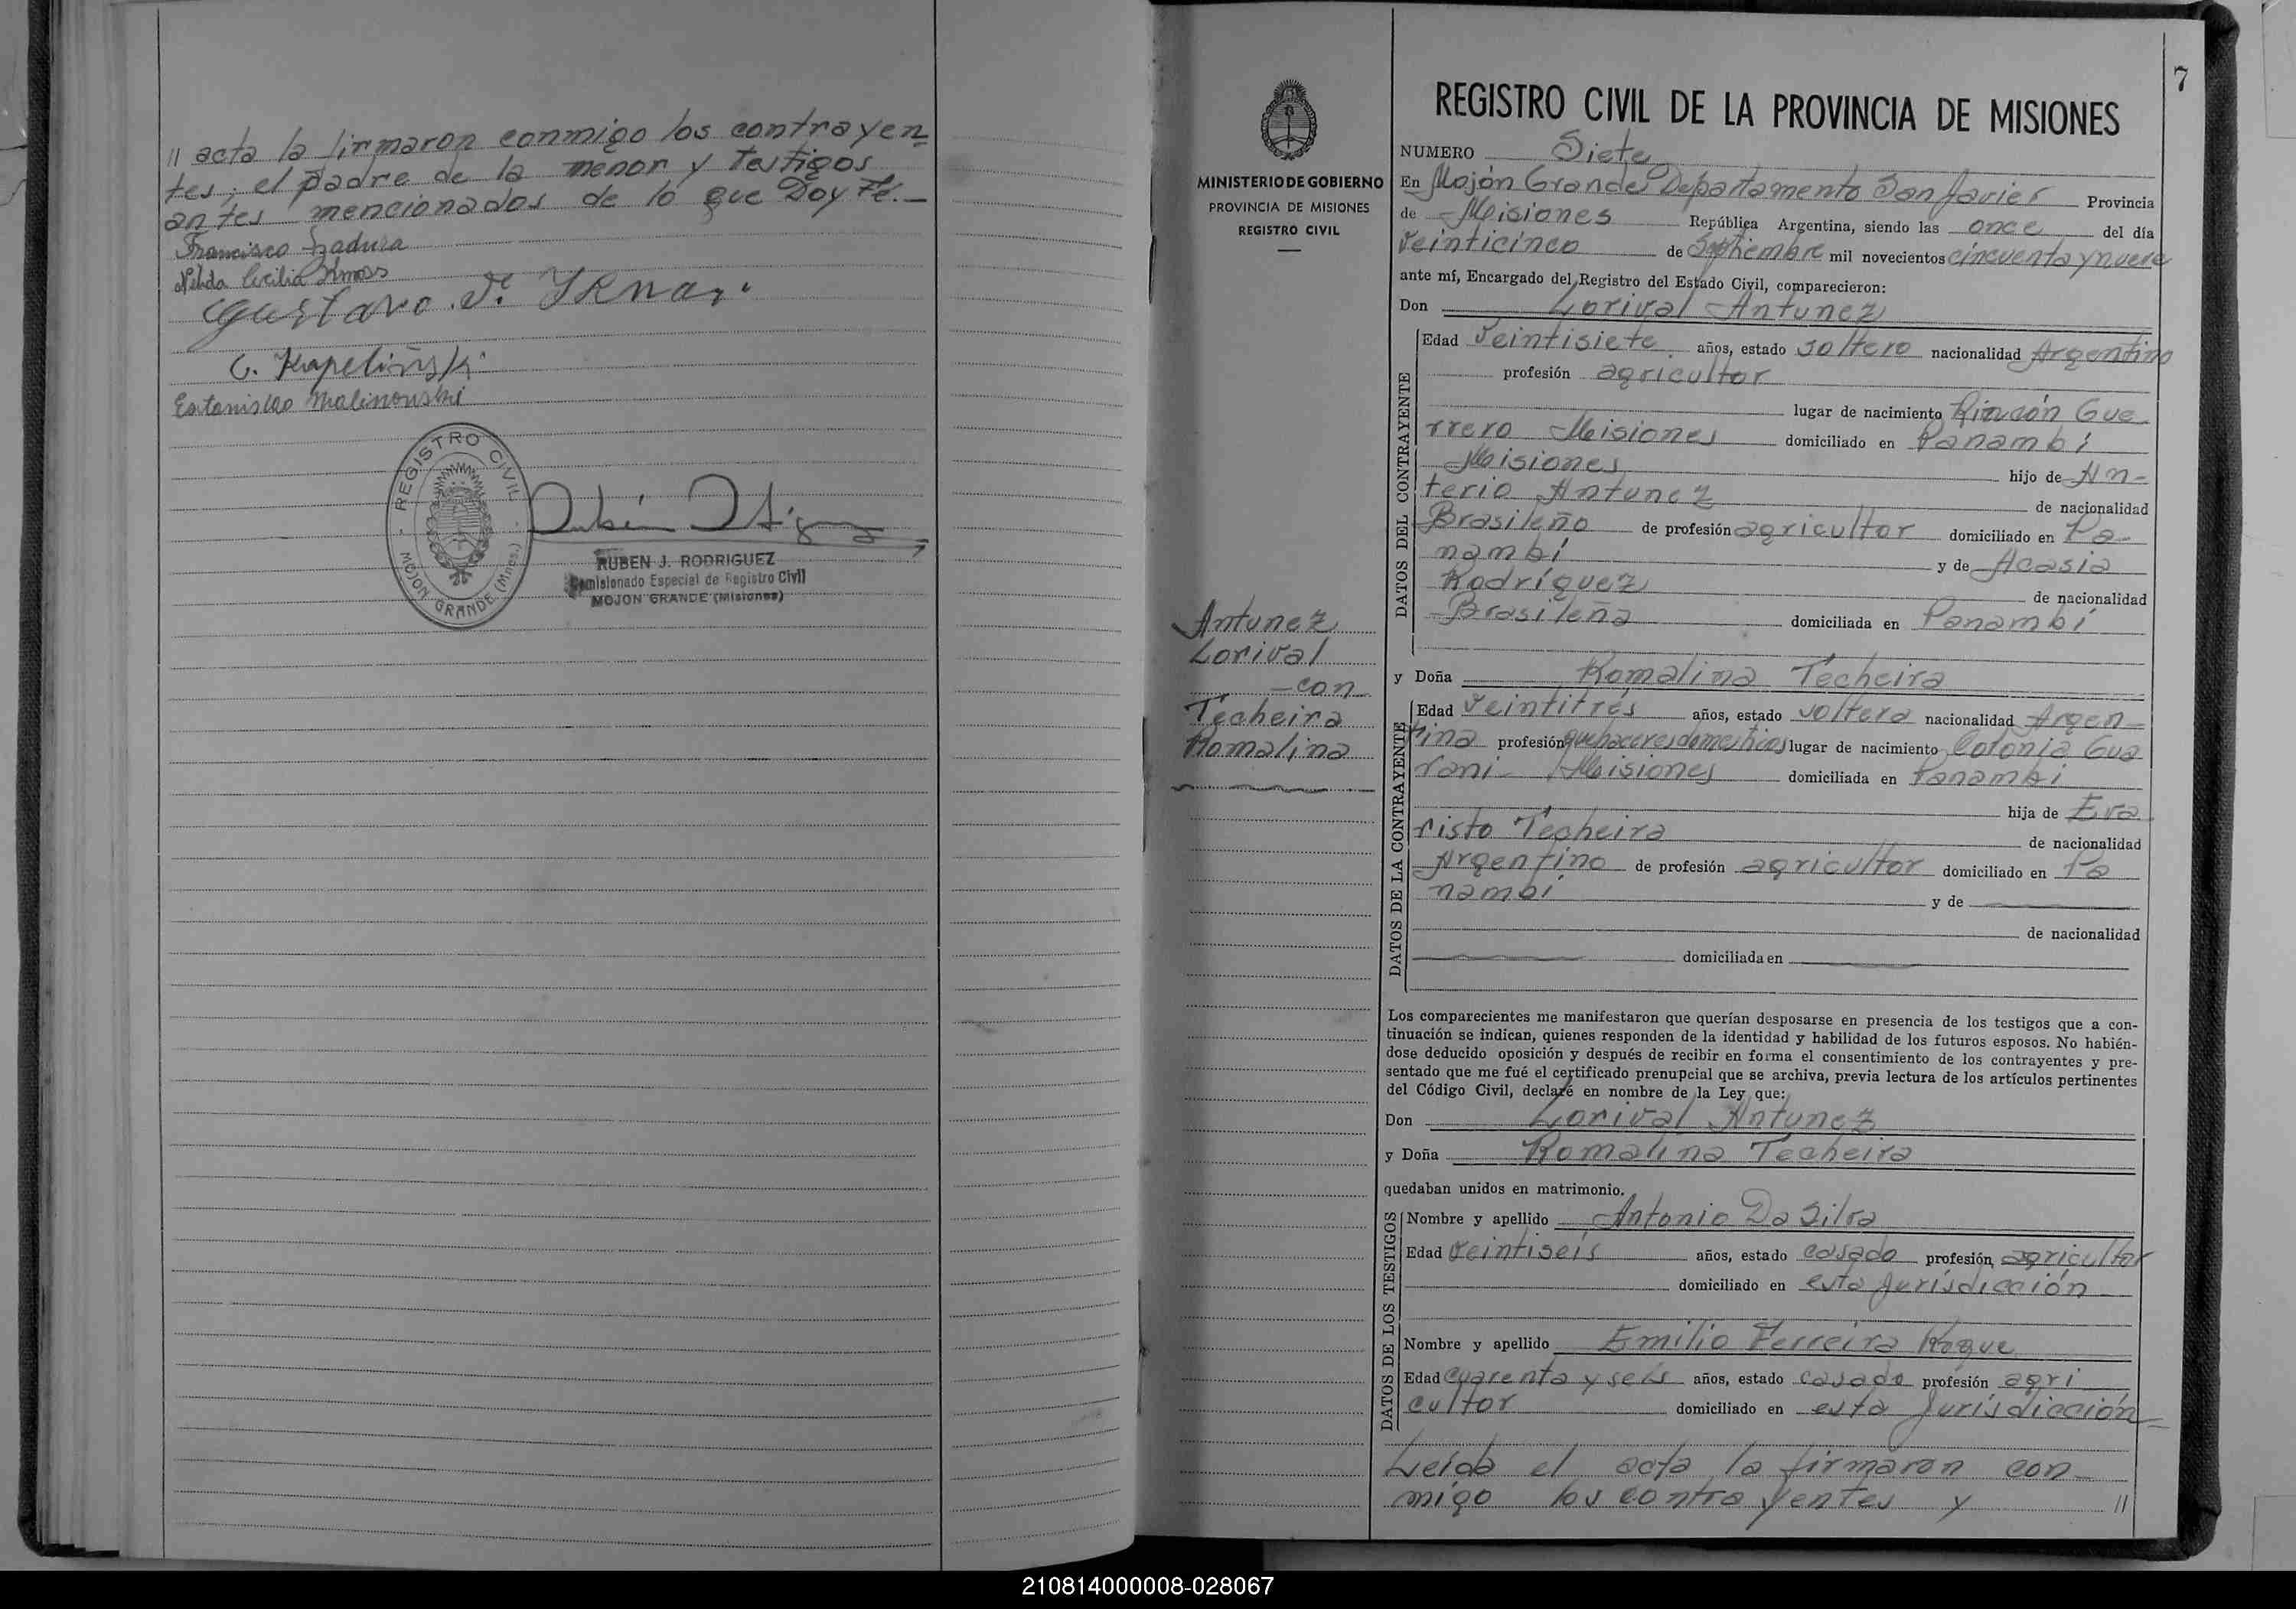 // acta la firmaron conmigo los contrayen
tes; el padre de la menor y testigos
antes mencionados de lo que Doy Fé.-
Francisco Szadura
Nélida Cecilia
Gustavo
C. Kapeliński
Estanislao Malinowski
REGISTRO CIVIL
MOJON GRANDE (Mnes.)
RUBEN J. RODRIGUEZ
Comisionado Especial de Registro Civil
MOJON GRANDE (Misiones)
7
MINISTERIO DE GOBIERNO
PROVINCIA DE MISIONES
REGISTRO CIVIL
Antunez
Lorival
-con
Techeira
Romalina
REGISTRO CIVIL DE LA PROVINCIA DE MISIONES
NUMERO Siete
En Mojón Grande, Departamento San Javier Provincia
de Misiones República Argentina, siendo las once del día
veinticinco de Septiembre mil novecientos cincuenta y nueve
ante mí, Encargado del Registro del Estado Civil, comparecieron:
Don Lorival Antunez
DATOS DEL CONTRAYENTE
Edad veintisiete años, estado soltero nacionalidad Argentino
profesión agricultor
lugar de nacimiento Rincón Gue
rrero Misiones domiciliado en Panambí
Misiones hijo de An-
terio Antunez de nacionalidad
Brasileño de profesión agricultor domiciliado en Pa-
nambí y de Acasia
Rodríguez de nacionalidad
Brasileña domiciliada en Panambí
y Doña Romalina Techeira
DATOS DE LA CONTRAYENTE
Edad veintitrés años, estado soltera nacionalidad Argen-
tina profesión quehaceres domesticos lugar de nacimiento Colonia Gua
raní Misiones domiciliada en Panambí
hija de Eva
risto Techeira de nacionalidad
Argentino de profesión agricultor domiciliado en Pa
nambí y de
de nacionalidad
domiciliada en
Los comparecientes me manifestaron que querían desposarse en presencia de los testigos que a con-
tinuación se indican, quienes responden de la identidad y habilidad de los futuros esposos. No habién-
dose deducido oposición y después de recibir en forma el consentimiento de los contrayentes y pre-
sentado que me fué el certificado prenupcial que se archiva, previa lectura de los artículos pertinentes
del Código Civil, declaré en nombre de la Ley que:
Don Lorival Antunez
y Doña Romalina Techeira
quedaban unidos en matrimonio.
DATOS DE LOS TESTIGOS
Nombre y apellido Antonio Da Silva
Edad veintiseis años, estado casado profesión agricultor
domiciliado en esta jurisdicción
Nombre y apellido Emilio Ferreira Roque
Edad cuarenta y seis años, estado casado profesión agri
cultor domiciliado en esta jurisdicción
Leída el acta la firmaron con-
migo los contrayentes y //
210814000008-028067